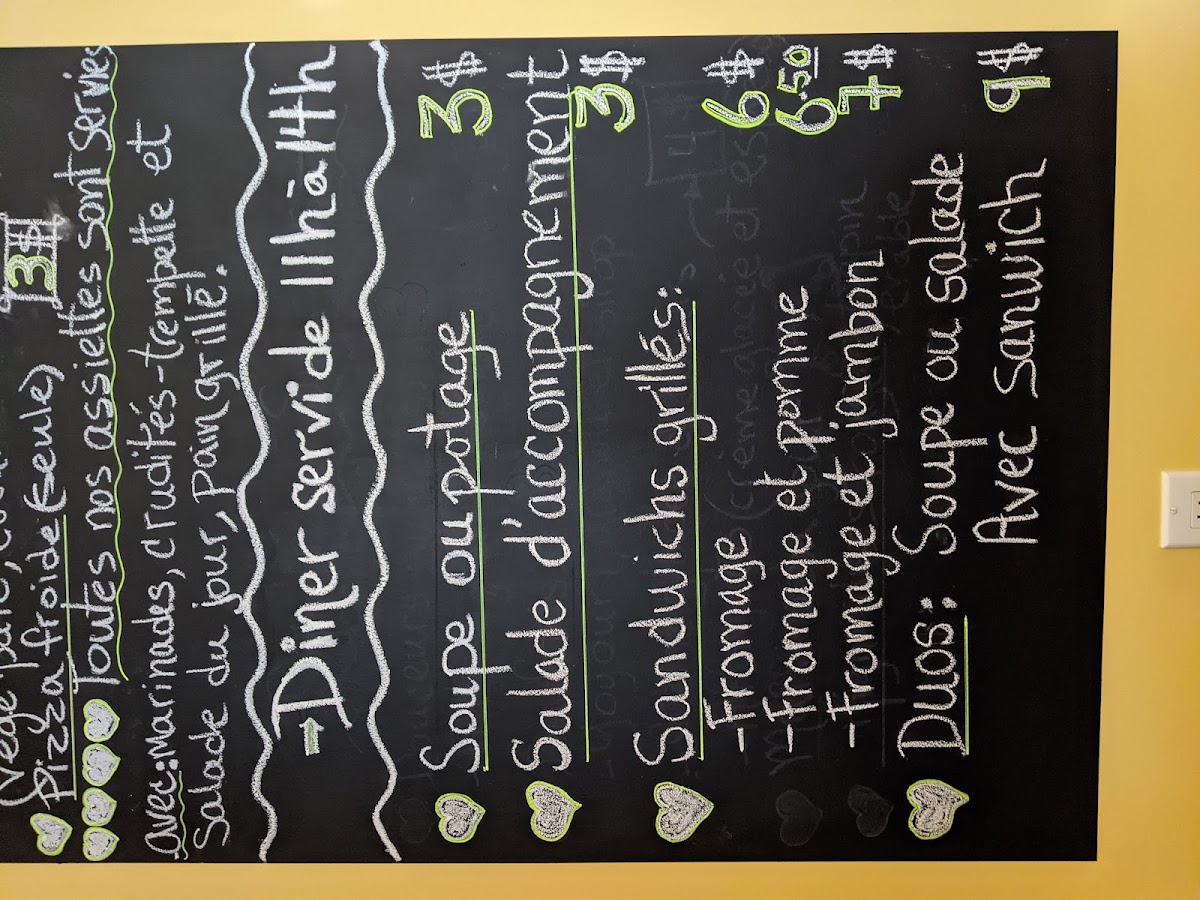 Végé pâté,
Pizza froide (seule) 3$
Toutes nos assiettes sont servies
avec: Marinades, crudités-trempette et
Salade du jour, pain grillé.
→ Diner servi de 11h à 14h
Soupe ou potage 3$
Salade d'accompagnement 3$
Sandwichs grillés:
-Fromage 6$
-Fromage et pomme 6.50
-Fromage et jambon 7$
Duos: Soupe ou salade
Avec sanwich 9$